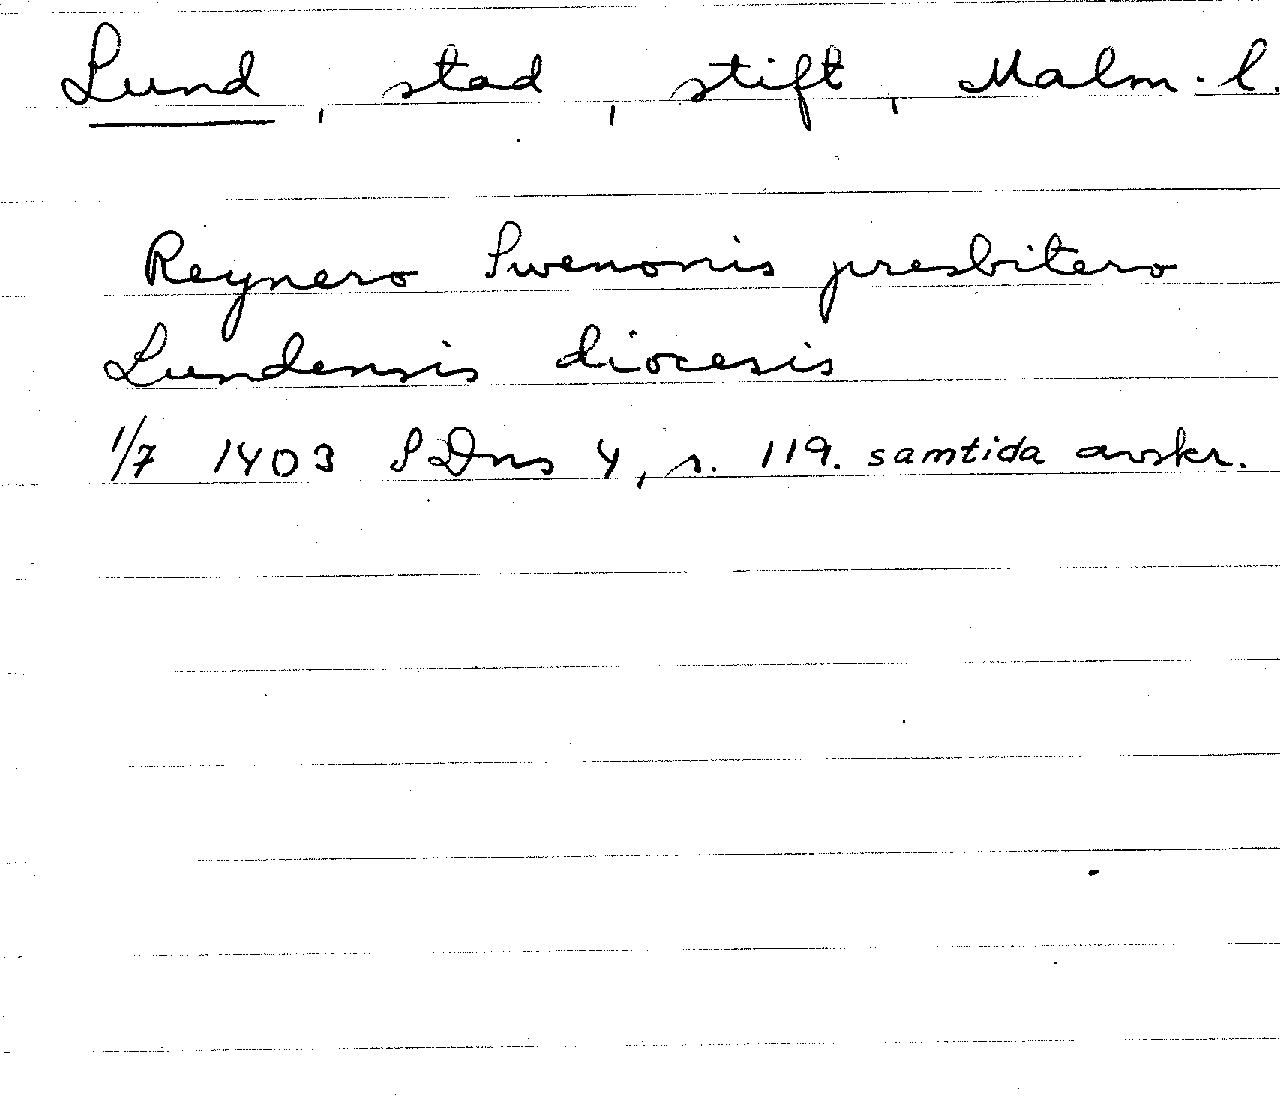 Lund, stad, stift, Malm-l.
Reynero Swenonis presbitero
Lundensis diocesis
1/7 1403 SDns 4, s. 119. samtida avskr.